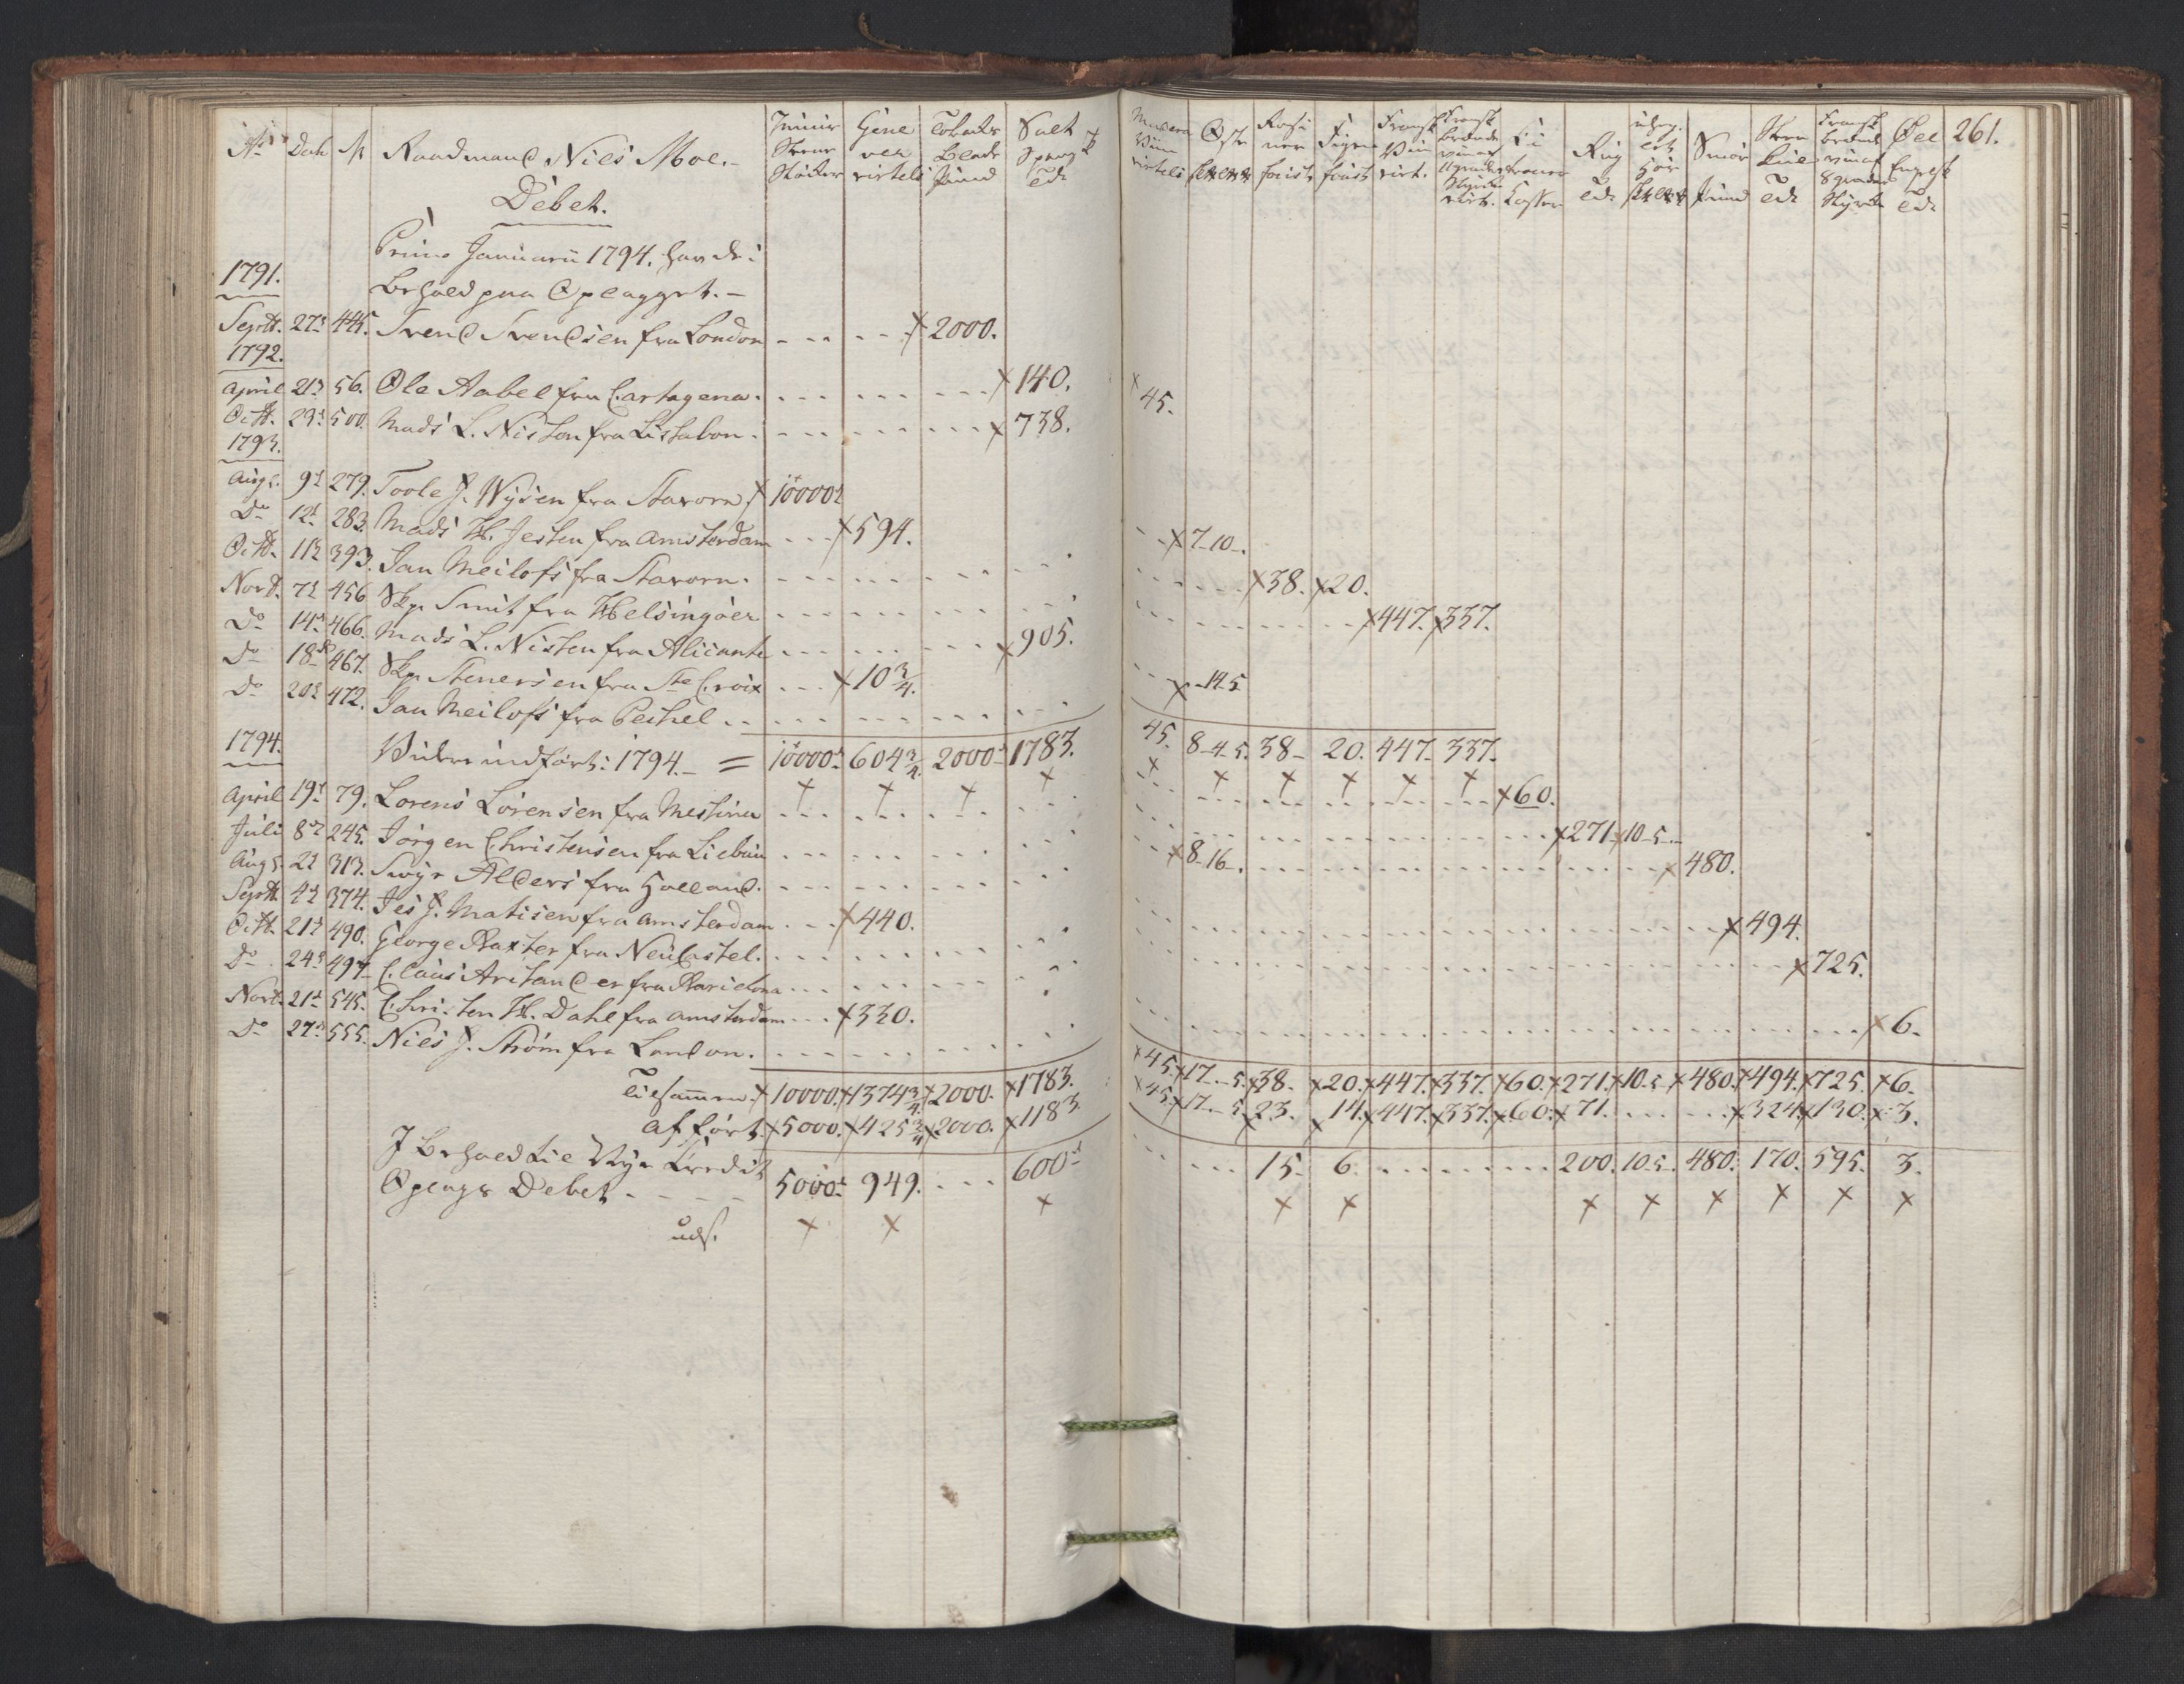 Dat. Raadmand Niels Moe.- Gene Salt Øst Rug Smör Øel 261.
Debet.
Primo Januarii 1794. havde i
1791. Behold paa Oplagget.-
Septbr. 27d 445. Svend Svendsen fra London x 2000.
1792.
April 21d 56. Ole Aabel fra Cartagena. x 140.
Octb. 29d 500. Mads L. Nisten fra Lissabon. x 738. x 45.
1793.
Augs. 9d 279. Toole J. Wysen fra Stavorn x 10000
Do 12d 283. Mads H. Jesten fra Amsterdam x 594. x 7-10-.
Octb. 11d 393. Jan Meilofs fra Stavorn. x 38. x 20.
Novb. 7d 456 Skp. Smit fra Helsingöer x 447. x 337.
Do 14d 466. Mads L. Nisten fra Alicante x 905.
Do 18d 467. Skp. Stenersen fra Ste Croix x 10 3/4. x -14-5
Do 20d 472. Jan Meilofs fra Pechel
1794. Videre indfört: 1794.- = 10000 604 3/4 2000 1783. 45. 8-4-5. 38- 20. 447- 337.
April 19d 79. Lorens Lorensen fra Messina x 60.
Juli 8d 245. Jörgen Christensen fra Liebau x 271 x 10-5-
Augs. 2d 313. Alders fra Holland. x 8-16-. x 480.
Septb. 4d 374. Jes J. Matisen fra Amsterdam x 440.
Octb. 21d 490. George Baxter fra NeuCastel. x 494.
Do 24d 497 Claus fra Barcelona x 725.
Novb. 21d 545. Christen H. Dahl fra Amsterdam x 330.
Do 27d 555. Niels J. Ström fra London. x 6.
Tilsammen x 10000. x 1374 3/4 x 2000. x 1783. x 45. x 17.-5. x 38. x 20. x 447. x 337. x 60. x 271. x 10-5 x 480. x 494. x 725. x 6.
Afført x 5000. x 425 3/4 x 2000. x 1183. x 45. x 17.-5. x 23. x 14. x 447. x 337. x 60. x 71. x 324. x 130. x 3.
I Behold til Nye Kredit
Oplags Debet 5000 949. 600 15. 6. 200. 10-5. 480. 170. 595. 3.
uds.